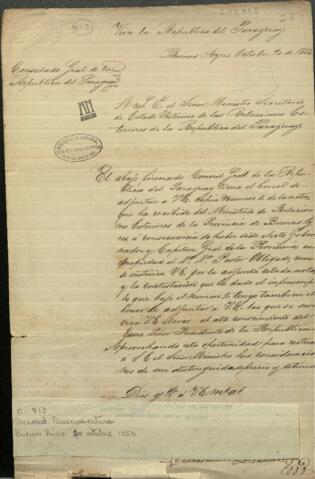 Viva la Republica del Paraguay
Buenos Ayres Octubre 20 de 1853
Consulado Gral de la
Republica del Paraguay
A S. E. el Señor Ministro Secretario
de Estado Interino de las Relaciones Es-
teriores de la Republica del Paraguay
El abajo firmado Consul Gral de la Repu-
blica del Paraguay tiene el honor de
adjuntar a V.E. copia numero 1 de la nota,
que ha recibido del Ministerio de Relacio-
nes Esteriores de la Provincia de Buenos Ay-
res a consecuencia de haber sido electo Gober-
nador y Capitan Gral de la Provincia en
propiedad el Sr. Dn. Pastor Obligado, como
se instruirá V.E. por la adjunta citada nota,
y la contestacion que ha dado el infrascripto
que bajo el numero 2 tengo tambien el
honor de adjuntar a V.E. las que se servi-
rá V.E. elevar al alto conocimiento del
Exmo Señor Presidente de la Republica
Aprovechando esta oportunidad para reiterar
a S.E. el Señor Ministro las consideracio-
nes de mi distinguido aprecio y estima
Dios gde a V.E. ms as
C. 913
Buenaventura
Buenos Aires 20 octubre 1853